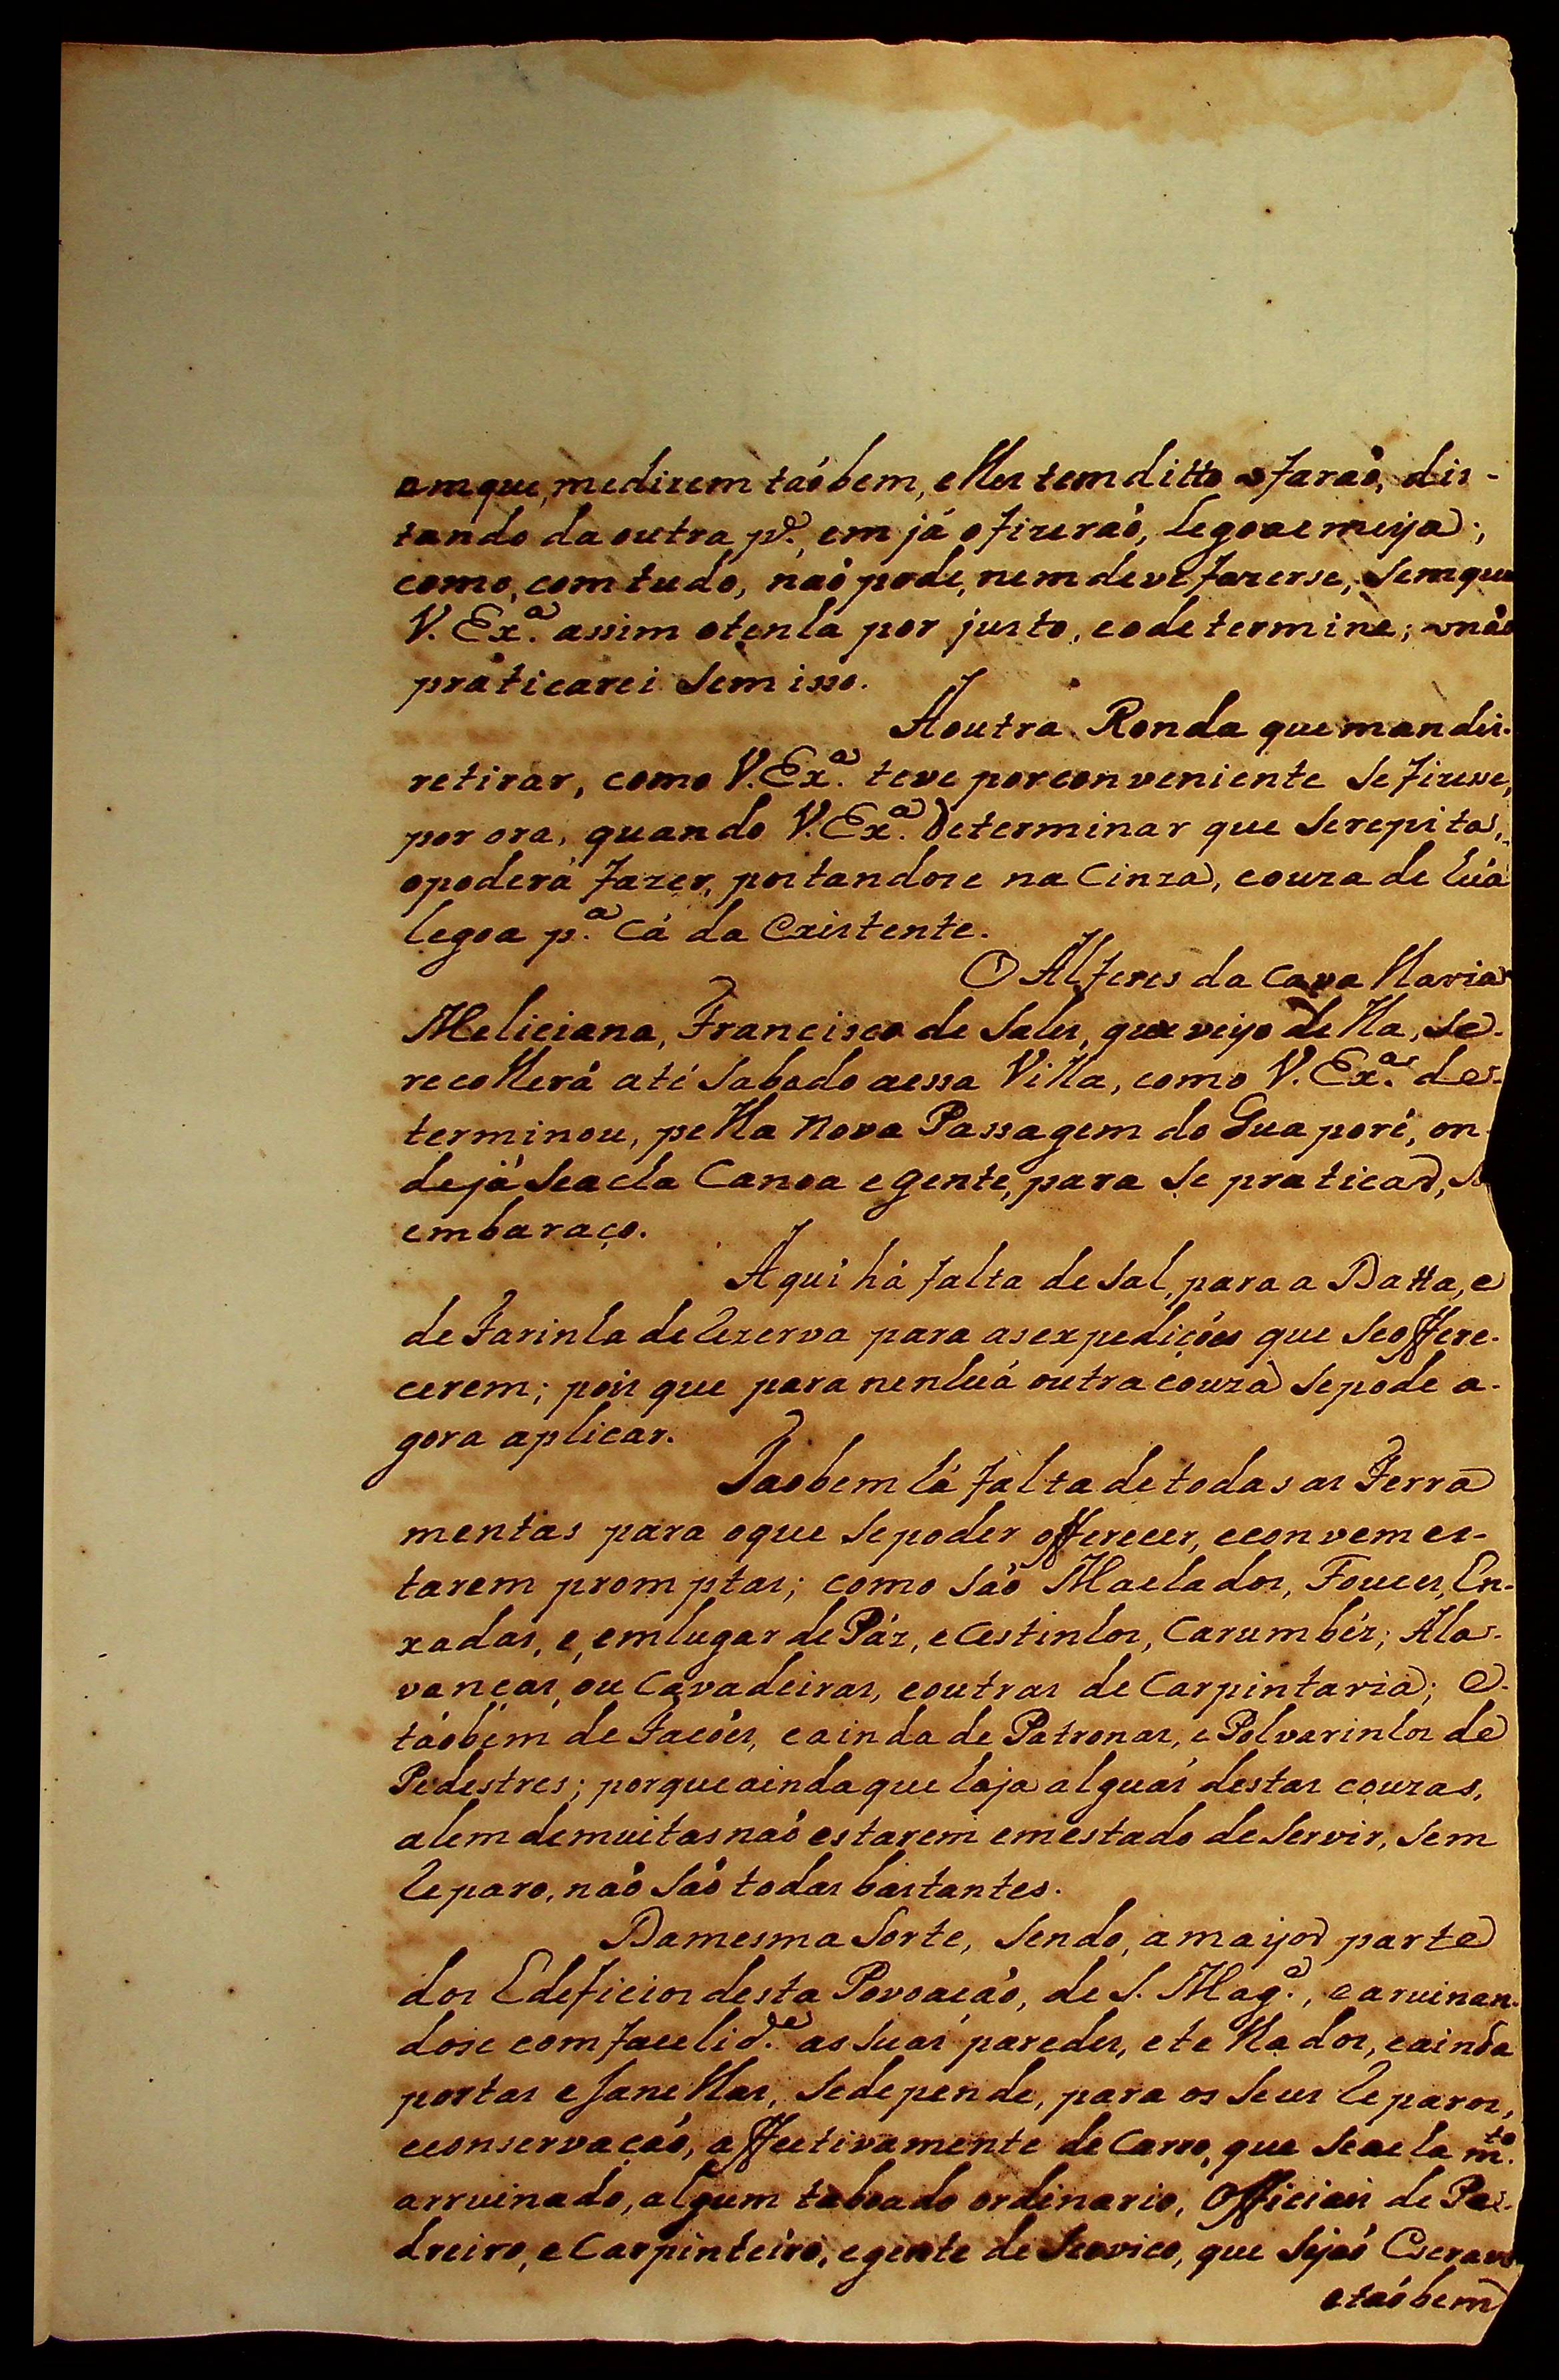 emque, medirem taóbem, elles tem ditto o faraó, dis-
tando da outra p.e, em já o fizeraó, legoa e meya;
como, com tudo, naó pode, nem deve fazerse, sem que
V. Ex.a assim o tenha por justo, e o determine; o naó
praticarei sem isso.
A outra Ronda que mandei
retirar, como V. Ex.a teve por conveniente se fizesse,
por ora, quando V. Ex.a Determinar que se repita,
o poderá fazer, postandose na Cinza, couza de húa
legoa p.a Cá da Existente.
O Alferes da Cavallaria
Meliciana, Francisco de Sales, que veyo della, se
recolherá até Sabado a essa Villa, como V. Ex.a de-
terminou, pella Nova Passagem do Guaporé, on-
de já se acha Canoa e gente, para se praticar, s
embaraço.
Aqui há falta de Sal, para a Datta, e
de Farinha de Rezerva para as expediçóes que se offere-
cerem; pois que para nenhuá outra couza se pode a-
gora aplicar.
Taobem há falta de todas as Ferra
mentas para o que se poder offerecer, e convem es-
tarem promptas; como saó Machados, Fouces, En-
xadas, e, em lugar de Páz, e Cestinhos, Carumbéz; Ala-
vancas, ou Cavadeiras, e outras de Carpintaria; e
taóbem de Facóes, e ainda de Patronas, e Polvarinhos de
Pedestres; porque ainda que haja alguás destas couzas,
alem de muitas naó estarem em estado de Servir, sem
Reparo, naó saó todas bastantes.
Da mesma Sorte, sendo, a mayor parte
dos Edeficios desta Povoaçaó, de S. Mag.e, e aruinan-
dose com facelid.e as suas paredes, e telhados, e ainda
portas e Janellas, se depende, para os seus Reparos,
e conservaçaó, effectivamente de Carro, que se acha m.to
arruinado, algum taboado ordinario, Officiais de Pe-
dreiro, e Carpinteiro, e gente de Servico, que sejaó Escravos
e taóbem